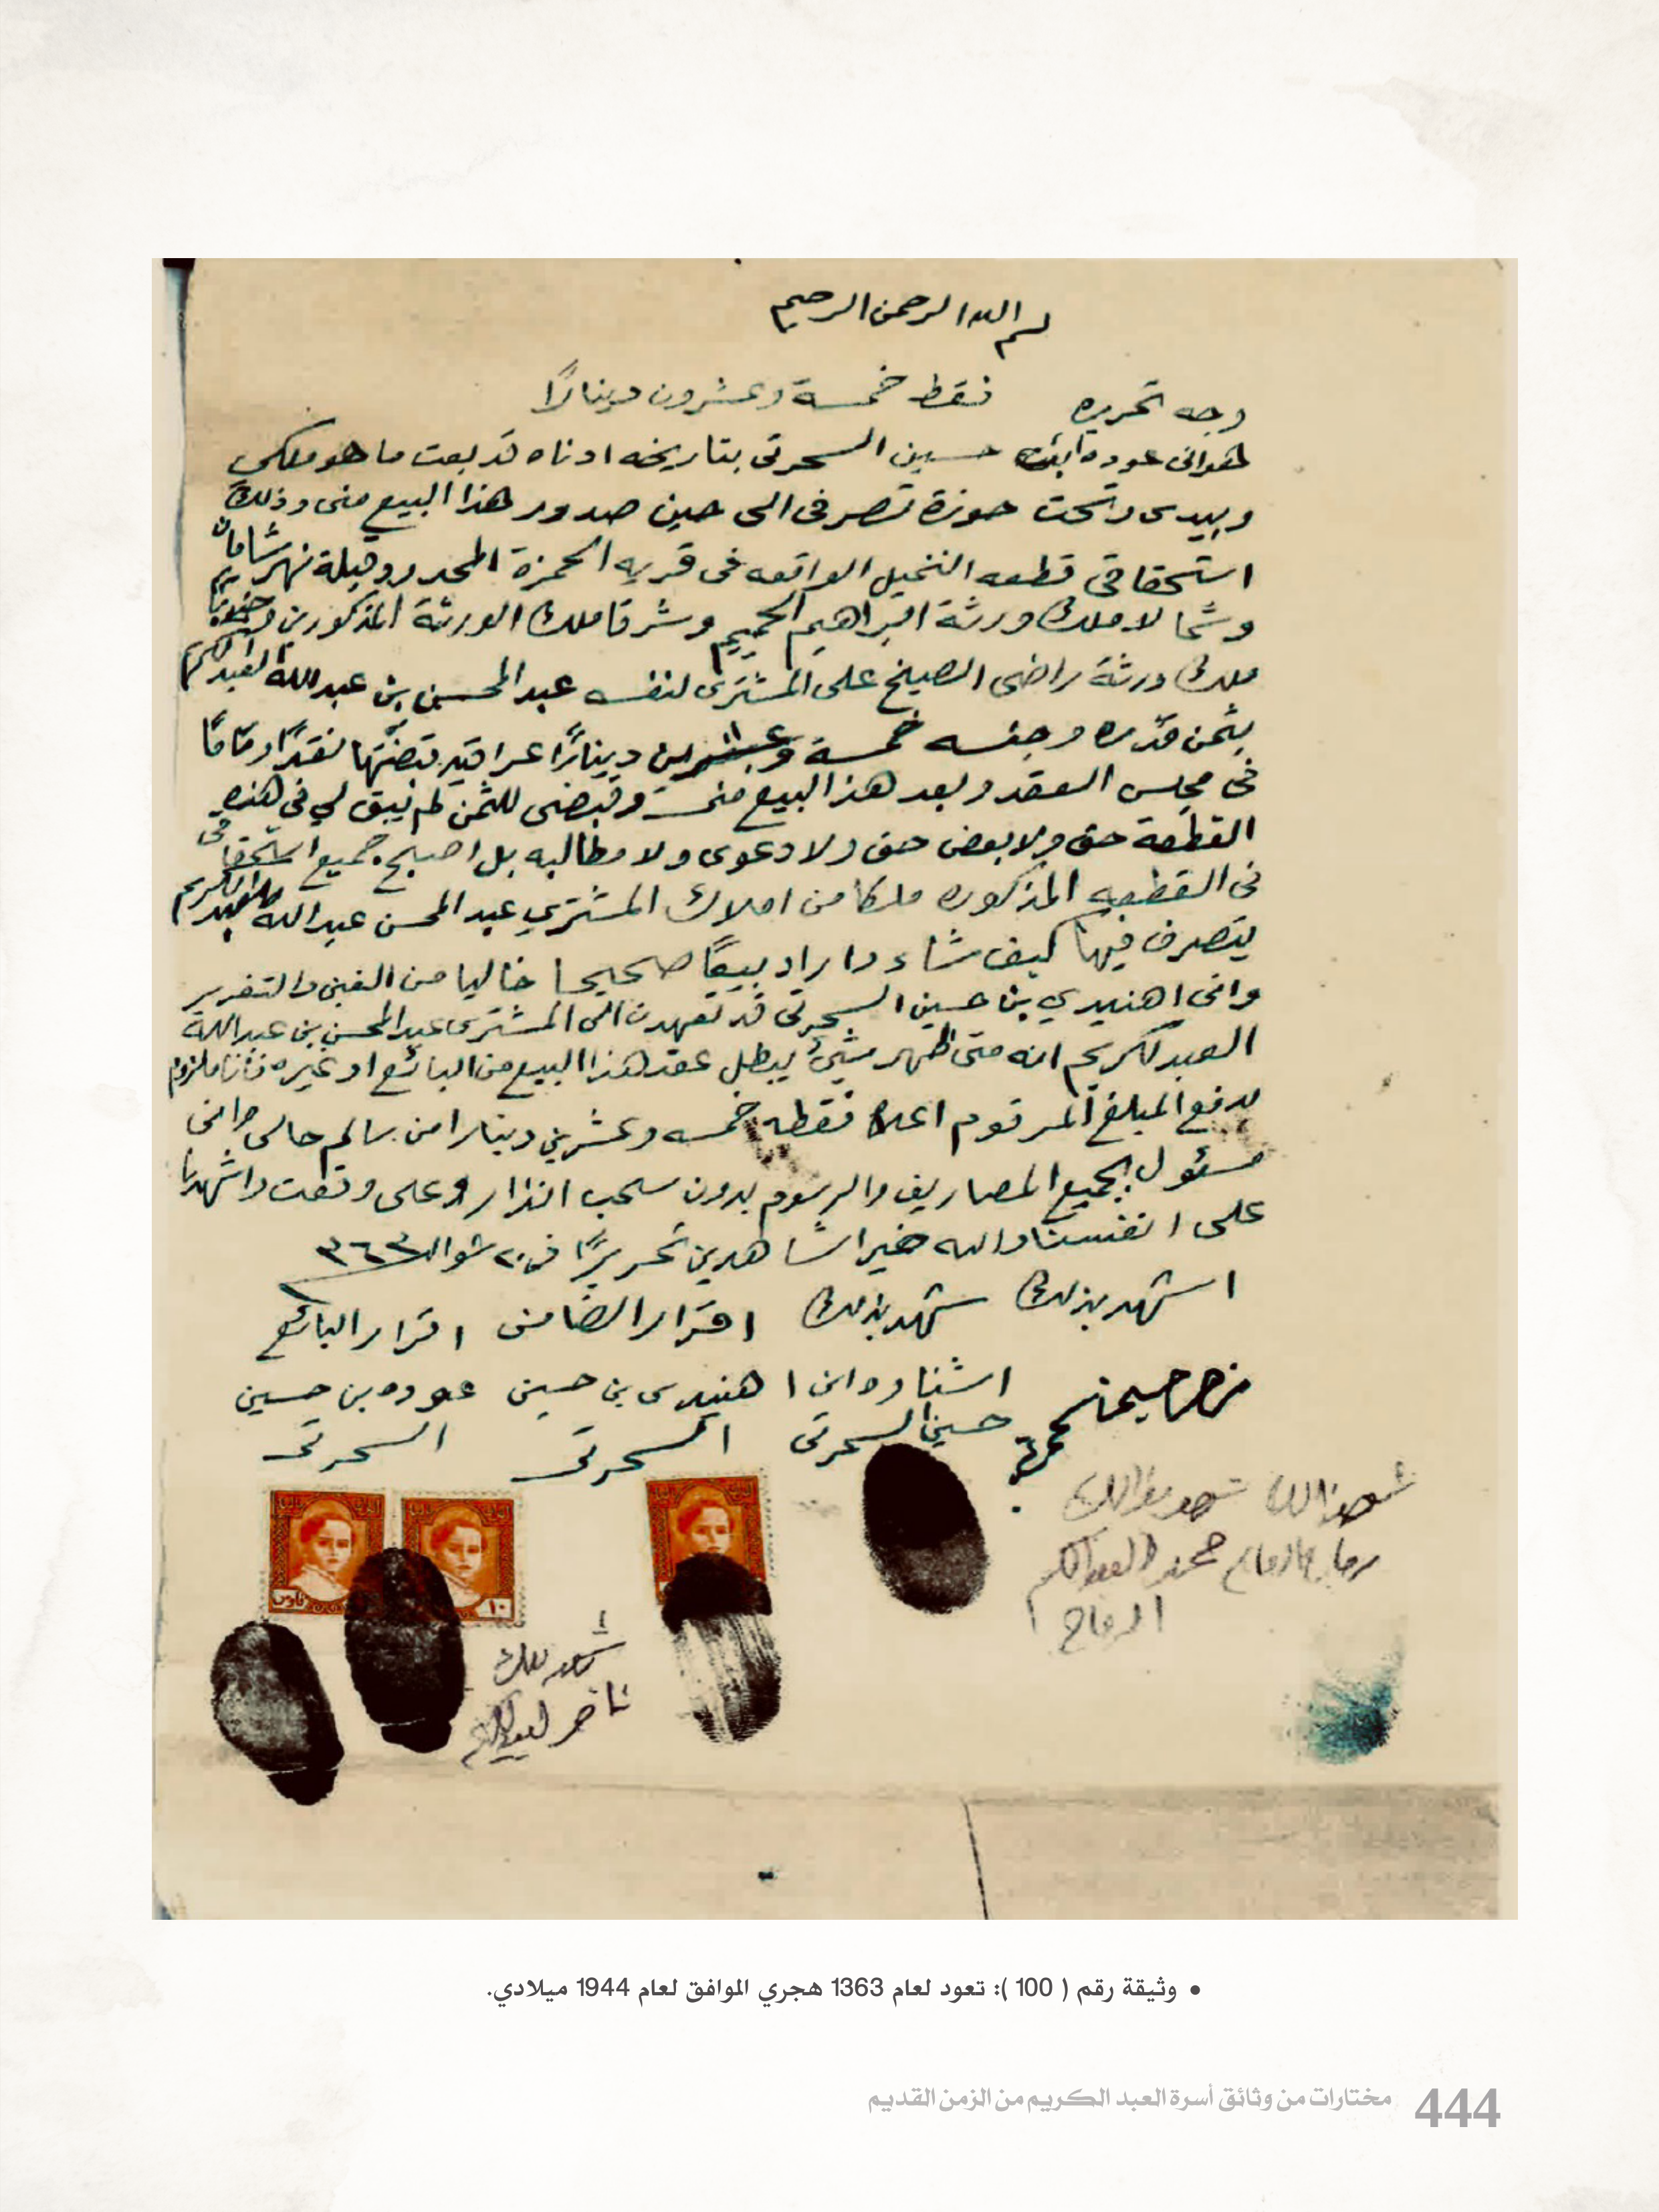 بسم الله الرحمن الرحيم
وجه تحريره فقط خمسة وعشرون دينارًا
هو اني عوده ابن حسين السحرتي بتاريخه ادناه قد بعت ما هو ملكي
وبيدي وتحت حوزة تصرفي الى حين صدور هذا البيع مني وذلك
استحقاقي قطعه النخيل الواقعه في قريه الحمزة المحدود قبلة نهر
وشمالا ملك ورثة ابراهيم وشرقا ملك الورثة المذكورين وجنوبًا
ملك ورثة راضي الصيلخ على المشتري لنفسه عبد المحسن بن عبدالله العبدالكريم
بثمن قدره وجنسه خمسة وعشرين دينارًا عراقيه قبضتها نقدًا وتمامًا
في مجلس العقد وبعد هذا البيع مني وقبضي للثمن لم يبق لي في هذه
القطعة حق ولا بعض حق ولا دعوى ولا مطالبه بل اصبح جميع استحقاقي
في القطعه المذكوره ملكا من املاك المشتري عبد المحسن عبدالله العبدالكريم
يتصرف فيها كيف شاء واراد بيعًا صحيحا خاليا من الغبن والتغرير
واني اهنيدي بن حسين السحرتي قد تعهدت الى المشتري عبدالمحسن بن عبدالله
العبدلكريم انه متى ظهر شيءٌ يبطل عقد هذا البيع من البائع او غيره فانا ملزوم
بدفع المبلغ المرقوم اعلاه فقطه خمسه وعشرين دينارا من سالم حالي واني
مسئول بجميع المصاريف والرسوم بدون سحب انذار وعلى وقعت واشهدنا
على انفسنا والله خير الشاهدين تحريرًا في ٢٠ شوال ٣٦٣
اشهد بذلك شهد بذلك اقرار الضامن اقرار البائع
اشنا وه ابن اهنيدي بن حسين عوده بن حسين
حسين السحرتي السحرتي السحرتي
شهد بذالك
محمد العبدالكريم
شهد بذلك
ناصر العبدالكريم
فلوس
١٠
• وثيقة رقم ( 100 ): تعود لعام 1363 هجري الموافق لعام 1944 ميلادي.
444 مختارات من وثائق أسرة العبد الكريم من الزمن القديم